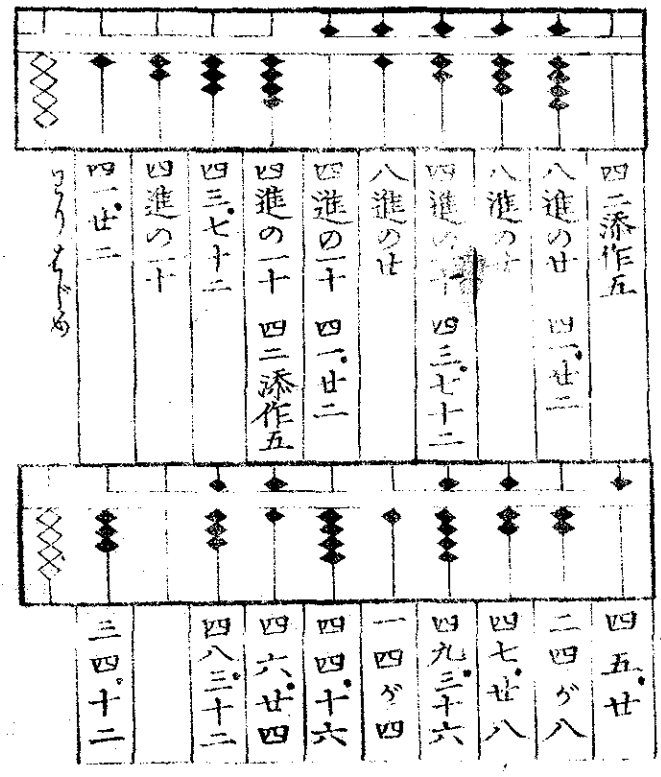 四二添作五
八進の廿 四一廿二
八進の廿
四進の一十 四三七十二
八進の廿
四進の一十 四一廿二
四進の一十 四二添作五
四三七十二
四進の一十
四一廿二
わりはじめ
四五廿
二四が八
四七廿八
四九三十六
一四が四
四四十六
四六廿四
四八三十二
三四十二